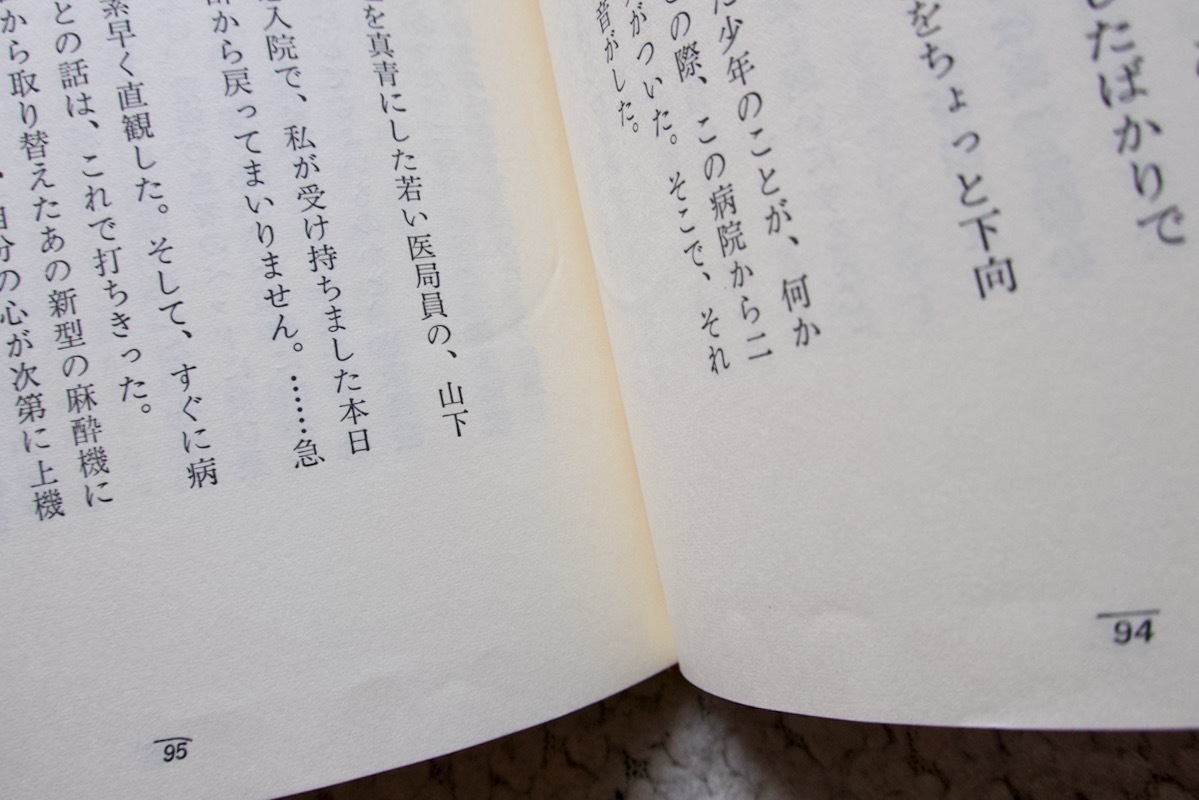 したばかりで
をちょっと下向
少年のことが、何か
の際、この病院から二
がついた。そこで、それ
音がした。
94
を真青にした若い医局員の、山下
入院で、私が受け持ちました本日
から戻ってまいりません。……急
素早く直観した。そして、すぐに病
との話は、これで打ちきった。
から取り替えたあの新型の麻酔機に
自分の心が次第に上機
95